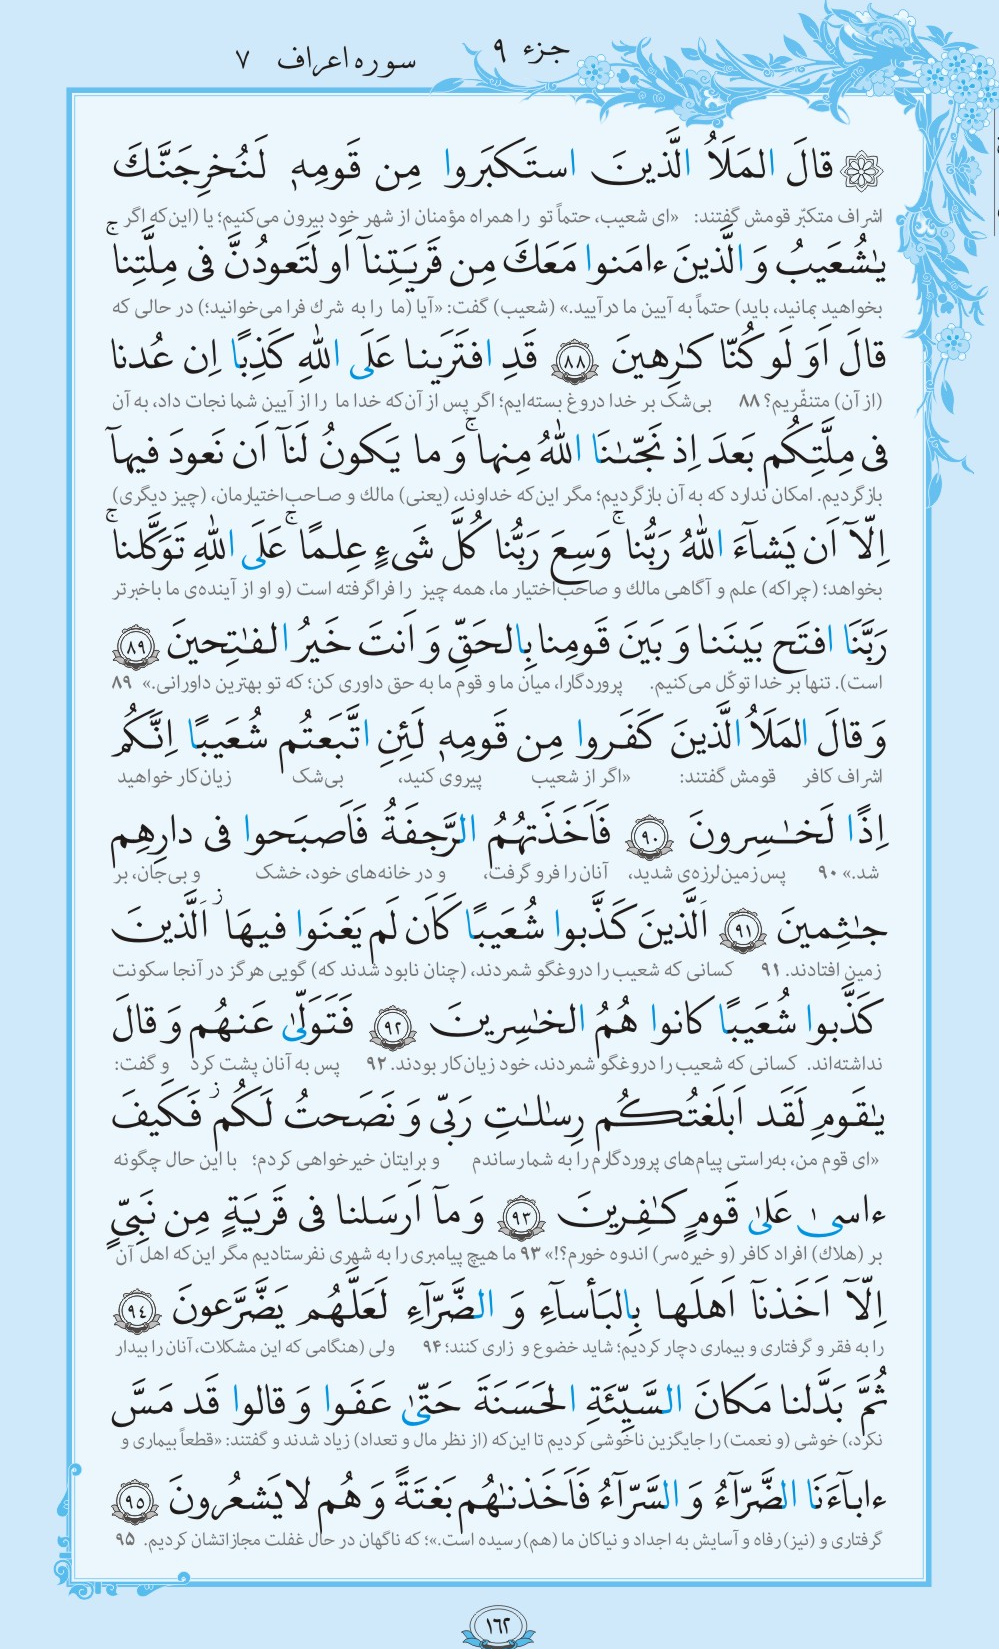 جزء ۹
سوره اعراف ۷
قالَ المَلَاُ الَّذینَ استَکبَروا مِن قَومِهٖ لَنُخرِجَنَّكَ
اشراف متکبّر قومش گفتند: «ای شعیب، حتماً تو را همراه مؤمنان از شهر خود بیرون می‌کنیم؛ یا (این‌که اگر
یٰشُعَیبُ وَ الَّذینَ ءامَنوا مَعَكَ مِن قَریَتِنآ اَو لَتَعودُنَّ فی مِلَّتِنا ۚ
بخواهید بمانید، باید) حتماً به آیین ما درآیید.» (شعیب) گفت: «آیا (ما را به شرك فرا می‌خوانید؛) در حالی که
قالَ اَوَ لَو کُنّا کٰرِهینَ ﴿٨٨﴾ قَدِ افتَرَینا عَلَی اللّٰهِ کَذِبًا اِن عُدنا
(از آن) متنفّریم؟ ۸۸ بی‌شک بر خدا دروغ بسته‌ایم؛ اگر پس از آن‌که خدا ما را از آیین شما نجات داد، به آن
فی مِلَّتِکُم بَعدَ اِذ نَجّىٰنَا اللّٰهُ مِنها ۚ وَ ما یَکونُ لَنآ اَن نَعودَ فیهآ
بازگردیم. امکان ندارد که به آن بازگردیم؛ مگر این‌که خداوند، (یعنی) مالك و صاحب‌اختیارمان، (چیز دیگری)
اِلّآ اَن یَشآءَ اللّٰهُ رَبُّنا ۚ وَسِعَ رَبُّنا کُلَّ شَیءٍ عِلمًا ۚ عَلَی اللّٰهِ تَوَکَّلنا ۚ
بخواهد؛ (چراکه) علم و آگاهی مالك و صاحب‌اختیار ما، همه چیز را فراگرفته است (و او از آینده‌ی ما باخبرتر
رَبَّنَا افتَح بَینَنا وَ بَینَ قَومِنا بِالحَقِّ وَ اَنتَ خَیرُ الفٰتِحینَ ﴿٨٩﴾
است). تنها بر خدا توکّل می‌کنیم. پروردگارا، میان ما و قوم ما به حق داوری کن؛ که تو بهترین داورانی.» ۸۹
وَ قالَ المَلَاُ الَّذینَ کَفَروا مِن قَومِهٖ لَئِنِ اتَّبَعتُم شُعَیبًا اِنَّکُم
اشراف کافر قومش گفتند: «اگر از شعیب پیروی کنید، بی‌شک زیان‌کار خواهید
اِذًا لَخٰسِرونَ ﴿٩٠﴾ فَاَخَذَتهُمُ الرَّجفَةُ فَاَصبَحوا فی دارِهِم
شد.» ۹۰ پس زمین‌لرزه‌ی شدید، آنان را فرو گرفت، و در خانه‌های خود، خشک و بی‌جان، بر
جٰثِمینَ ﴿٩١﴾ اَلَّذینَ کَذَّبوا شُعَیبًا کَاَن لَم یَغنَوا فیهَا ۛ اَلَّذینَ
زمین افتادند. ۹۱ کسانی که شعیب را دروغگو شمردند، (چنان نابود شدند که) گویی هرگز در آنجا سکونت
کَذَّبوا شُعَیبًا کانوا هُمُ الخٰسِرینَ ﴿٩٢﴾ فَتَوَلّىٰ عَنهُم وَ قالَ
نداشته‌اند. کسانی که شعیب را دروغگو شمردند، خود زیان‌کار بودند. ۹۲ پس به آنان پشت کرد و گفت:
یٰقَومِ لَقَد اَبلَغتُکُم رِسٰلٰتِ رَبّی وَ نَصَحتُ لَکُم ز فَکَیفَ
«ای قوم من، به‌راستی پیام‌های پروردگارم را به شما رساندم و برایتان خیرخواهی کردم؛ با این حال چگونه
ءاسىٰ عَلىٰ قَومٍ کٰفِرینَ ﴿٩٣﴾ وَ مآ اَرسَلنا فی قَریَةٍ مِن نَبِیٍّ
بر (هلاك) افراد کافر (و خیره‌سر) اندوه خورم؟!» ۹۳ ما هیچ پیامبری را به شهری نفرستادیم مگر این‌که اهل آن
اِلّآ اَخَذنآ اَهلَها بِالبَأسآءِ وَ الضَّرّآءِ لَعَلَّهُم یَضَّرَّعونَ ﴿٩٤﴾
را به فقر و گرفتاری و بیماری دچار کردیم؛ شاید خضوع و زاری کنند؛ ۹۴ ولی (هنگامی که این مشکلات، آنان را بیدار
ثُمَّ بَدَّلنا مَکانَ السَّیِّئَةِ الحَسَنَةَ حَتّىٰ عَفَوا وَ قالوا قَد مَسَّ
نکرد،) خوشی (و نعمت) را جایگزین ناخوشی کردیم تا این‌که (از نظر مال و تعداد) زیاد شدند و گفتند: «قطعاً بیماری و
ءابآءَنَا الضَّرّآءُ وَ السَّرّآءُ فَاَخَذنٰهُم بَغتَةً وَ هُم لا یَشعُرونَ ﴿٩٥﴾
گرفتاری و (نیز) رفاه و آسایش به اجداد و نیاکان ما (هم) رسیده است.»؛ که ناگهان در حال غفلت مجازاتشان کردیم. ۹۵
١٦٢